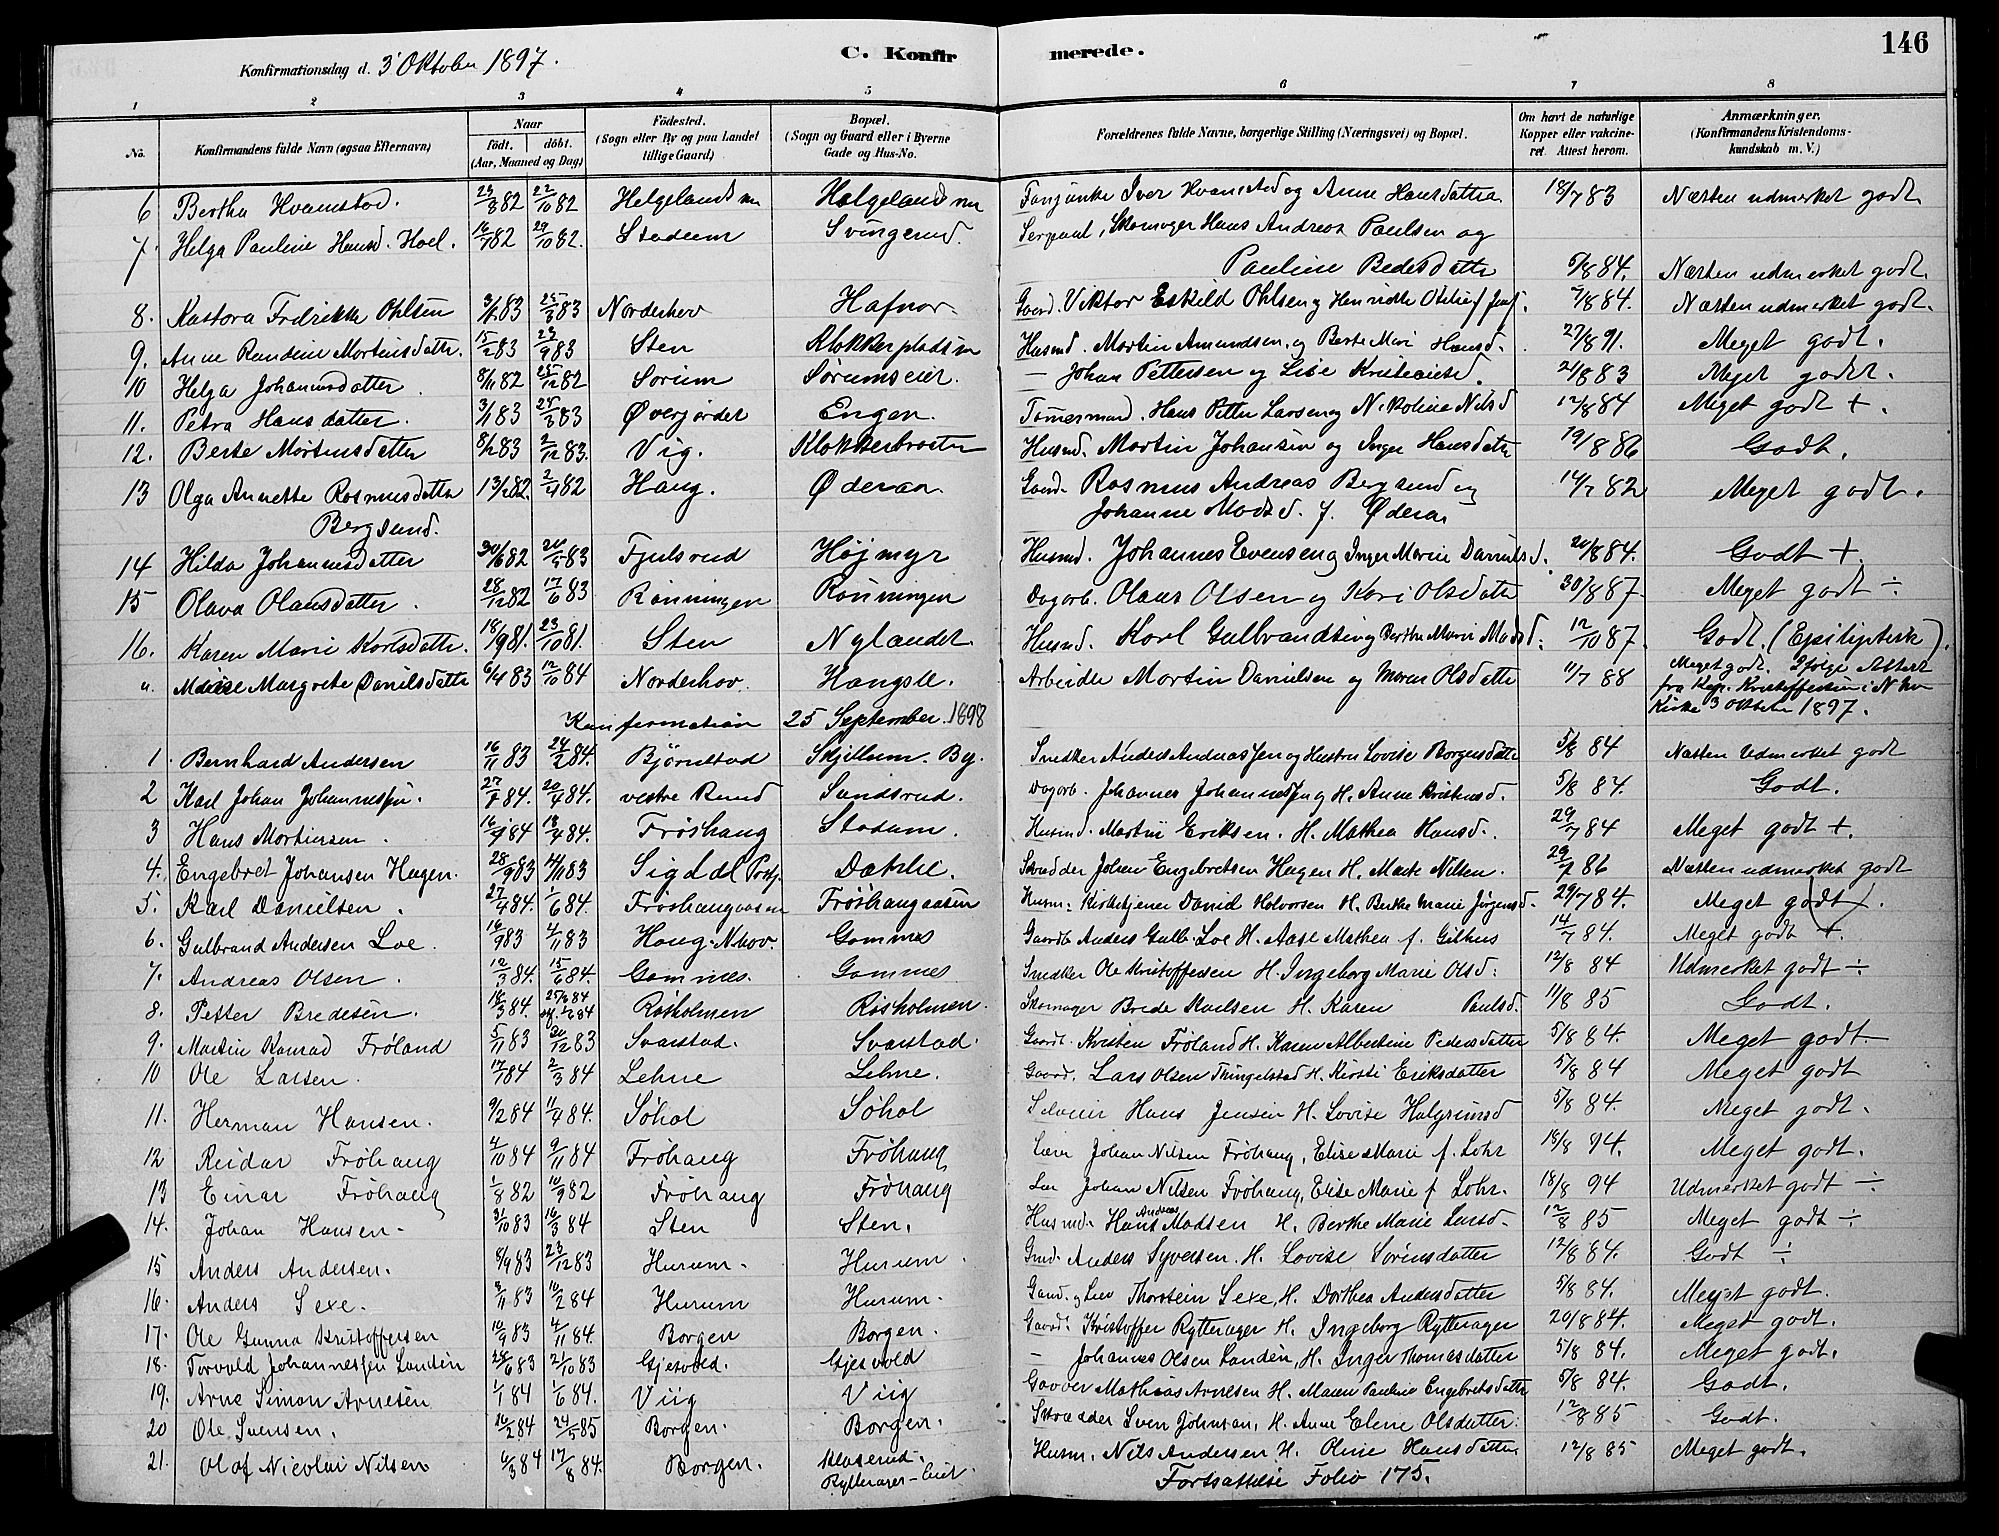 Konfirmationsdag d. 3' Oktober 1897. C. Konfirmerede. 146
1 2 3 4 5 6 7 8
No. Konfirmandens fulde Navn (ogsaa Efternavn) Naar födt. döbt. (Aar, Maaned og Dag) Födested. (Sogn eller By og paa Landet tillige Gaard) Bopæl. (Sogn og Gaard eller i Byerne Gade og Hus-No. Forældrenes fulde Navne, borgerlige Stilling (Næringsvei) og Bopæl. Om havt de naturlige Kopper eller vakcineret. Attest herom. Anmærkninger. (Konfirmandens Kristendomskundskab m. V.)
6 Bertha Hvamstad. 23/8 82 22/10 82 Helgelands Helgelands Iver Hvamstad og Anne Hansdatter 18/7 83 Næsten udmerket godt
7. Helga Pauline Hansd. Hoel. 16/7 82 29/10 82. Stadum Svingerud. Sergeant, Skomager Hans Andreas Paulsen og
Pauline 5/8 84. Næsten udmerket godt.
8. Kastora Fredrikke Ohlsen 83 25/3 83 Norderhov Hafnor Gaard. Viktor Eskild Ohlsen og 7/8 84. Næsten udmerket godt.
9. Anne Randine Mortinsdatter. 15/2 83 23/9 83 Sten Klokkerpladsen Husmd. Martin Amundsen, og Berte Mari Hansd. 27/8 91. Meget godt.
10 Helga Johannsdatter 8/11 82 25/12 82 Sørum Sørumseier. — Johan Pettersen og Lise 21/8 83 Meget godt.
11. Petra Hansdatter. 3/1 83 25/3 83 Øverjordet Engen. Tømermand. Hans Petter Larsen og Nikoline Nilsd 12/8 84 Meget godt +.
12. Berte Mortinsdatter 83 2/12 83. Vig. Klokkerbraaten Husmd. Martin Johansen og Inger Hansdatter 19/8 86 Godt.
13 Olga Annette Rasmusdatter 13/2 82. 2/4 82 Haug. Øderaa. Gaard. Rasmus Andreas Bergsund og 14/7 82 Meget godt.
Bergsund. Johanne Madsd. f. Øderaa
14 Hilda Johannesdatter 30/6 82 83 Fjulsrud Højmyr Husmd. Johannes Evensen og Inger Marie 20/8 84. Godt +.
15 Olava Olausdatter. 28/12 82 17/6 83 Rønningen Rønningen Dagarb. Olaus Olsen og Kari Olsdatter 30/8 87. Meget godt ÷
16. Karen Marie Karlsdatter. 18/9 81. 23/10 81. Sten Nylandet Husmd. Karl Gulbrandsen og Berthe Marie Madsd. 12/10 87. Godt. (Epileptisk).
Margrete Danielsdatter 6/4 83 12/10 84 Norderhov. Haugsle. Arbeider Martin Danielsen og Maren Olsdatter 11/7 88 Meget godt. Ifølge Attest
fra Kap. Kristoffersen i N.hov
Kirke 3 Oktober 1897.
Konfirmation 25 September. 1898
1 Bernhard Andersen 16/11 83 24/2 84. Bjørnstad Skjillum. By. Snedker Anders Andreassen og Hustru Lovise Borgersdatter 5/8 84 Næsten Udmerket godt
2 Karl Johan Johannessen. 84. 20/4 84. vestre Rund Sandsrud. Dagarb. Johannes Johannessen og H. Anne 5/8 84. Godt.
3 Hans Mortinsen. 84 13/4 84. Frøshaug Stadum. Husmd. Martin Eriksen. H. Mathea Hansd. 29/7 84 Meget godt +.
4. Engebret Johansen Hagen. 28/9 83 4/11 83 Sigdal Prstgj. Dæhlie. Skrædder Johan Engebretsen Hagen H. Marte Nilsen. 29/7 86 Næsten udmerket godt
5. Karl Danielsen. 27/4 84. 1/6 84. Frøshaugaasen Frøshaugaasen Husm. Kirketjener David Halvorsen H. Berthe Marie Jørgensd. 29/7 84. Meget godt +.
6. Gulbrand Andersen Loe. 16/9 83 4/11 83 Haug-Nhov. Gommes Gaardb Anders Gulb. Loe H. Aase Mathea f. Gilhus 14/7 84. Meget godt +.
7. Andreas Olsen. 12/3 84. 15/6 84. Gommes. Gommes Snedker Ole Kristoffersen H. Ingeborg Marie Olsd. 12/8 84 Udmerket godt ÷
8. Petter Bredesen. 16/3 84. 84 Rosholmen Rosholmen. Skomager Brede H. Karen Paulsd. 11/8 85 Godt.
9. Martin Konrad Frøland 5/11 83 30/12 83 Svarstad. Svarstad. Gaardb. Kristen Frøland H. Karen Albertine Pedersdatter 5/8 84. Meget godt.
10 Ole Larsen. 84 2/3 84 Lehne Lehne. Gaard. Lars Olsen Thingelstad H. Kirsti Eriksdatter 5/8 84 Meget godt
11. Herman Hansen. 9/2 84 11/4 84. Søhol Søhol Selveier Hans Jensen H. Lovise 5/8 84. Meget godt.
12 Reidar Frøhaug 4/10 84 9/11 84 Frøhaug Frøhaug Lærer Johan Nilsen Frøhaug, Elise Marie f. Lohr 18/8 94. Meget godt.
13 Einar Frøhaug 1/8 82 10/9 82 Frøhaug Frøhaug Lær Johan Nilsen Frøhaug, Elise Marie f Lohr. 18/8 94 Udmerket godt ÷
14. Johan Hansen. 31/10 83 16/3 84 Sten Sten. Husmd. Hans Andreas Madsen H. Berthe Marie Larsd. 12/8 85 Meget godt ÷
15 Anders Andersen. 8/9 83 23/12 83 Hurum. Hurum. Gmd. Anders Syversen. H. Lovise Sørensdatter 12/8 84. Godt ÷
16. Anders Sexe. 3/11 83 10/2 84 Hurum Hurum. Gaard. og Thorstein Sexe, H. Dorthea Andersdatter 5/8 84. Meget godt.
17. Ole Gunna Kristoffersen 10/9 83 4/11 84. Borgen Borgen. Gaard. Kristoffer Rytterager H. Ingeborg Rytterager 20/8 84. Meget godt.
18. Torvald Johannessen Landen 28/6 83 21/10 83 Gjesvold. Gjesvold — Johannes Olsen Landen, H. Inger Thomasdatter 5/8 84. Meget godt.
19. Arne Simon Arnesen 1/1 84 1/6 84. Viig Viig Garver Mathias Arnesen H. Maren Pauline Engebretsdatter 5/8 84. Godt.
20 Ole Svensen. 10/2 84 24/5 85 Borgen. Borgen. Skrædder Sven Johnsen, H. Anne Elene Olsdatter. 12/8 85 Godt.
21. Olaf Nicolai Nilsen 6/3 84 17/8 84. Borgen. Rytterager-Eiet. Husm. Nils Andersen H. Oline Hansdatter 12/8 85 Meget godt.
Fortsættelse Folio 175.